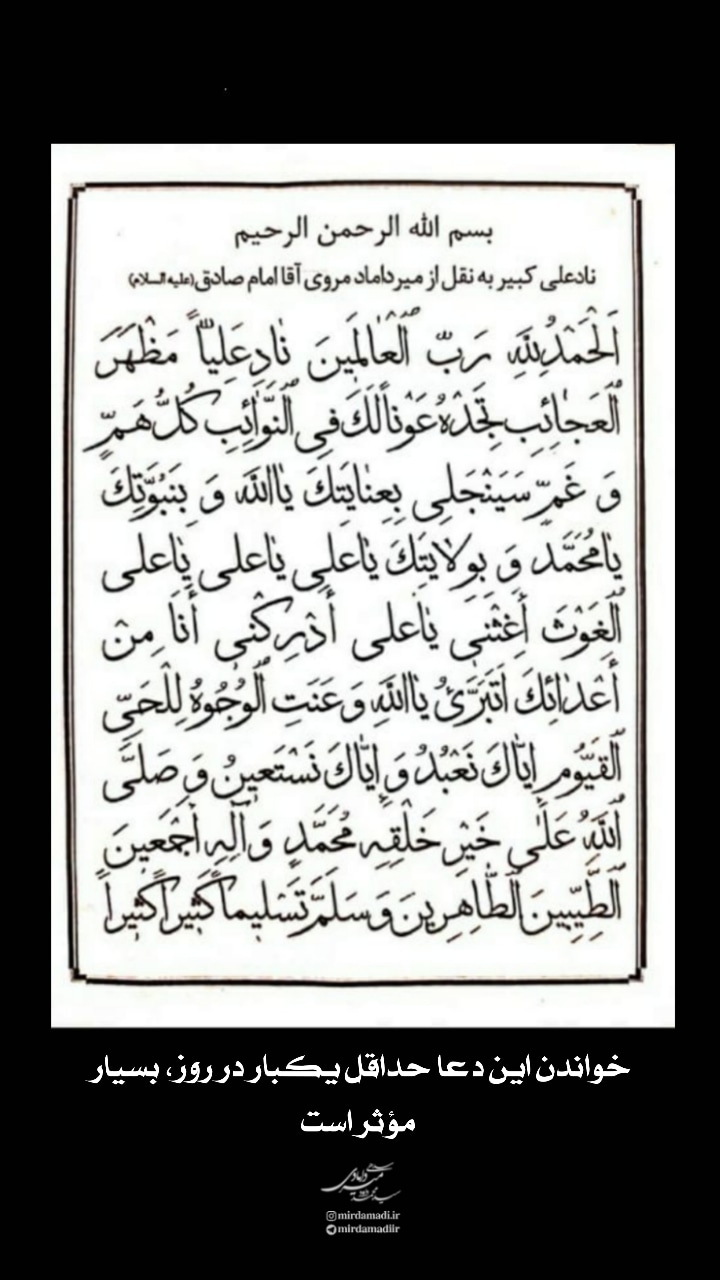 بسم الله الرحمن الرحیم
نادعلی کبیر به نقل از میرداماد مروی آقا امام صادق(علیه‌السلام)
اَلْحَمْدُلِلّٰهِ رَبِّ الْعٰالَمینَ نٰادِعَلِیاًّ مَظْهَرَ
الْعَجٰائِبِ تَجِدْهُ عَوْناًلَكَ فِی النَّوٰائِبِ كُلُّ هَمٍّ
وَ غَمٍّ سَیَنْجَلی بِعِنٰایَتِكَ یٰااَللّٰهُ وَ بِنَبُوَّتِكَ
یٰامُحَمَّدُ وَ بِوِلٰایَتِكَ یٰاعَلی یٰاعلی یٰاعلی
الْغَوْثَ أَغِثْنی یٰاعلی أَدْرِكْنی أَنَا مِنْ
أَعْدٰائِكَ اَتَبَرَّیُ یٰااَللّٰهِ وَ عَنَتِ الْوُجُوهُ لِلْحَیِّ
الْقَیُّومِ اِیّٰاكَ نَعْبُدُ وَ اِیّٰاكَ نَسْتَعینُ وَ صَلَّی
اللّٰهُ عَلٰی خَیْرِ خَلْقِهِ مُحَمَّدٍ وَ آلِهِ اَجْمَعینَ
الطَّیِّبینَ الطّٰاهِرینَ وَ سَلَّمَ تَسْلیماً كَثیراً كَثیراً
خواندن این دعا حداقل یکبار در روز، بسیار
مؤثر است
mirdamadi.ir
mirdamadiir